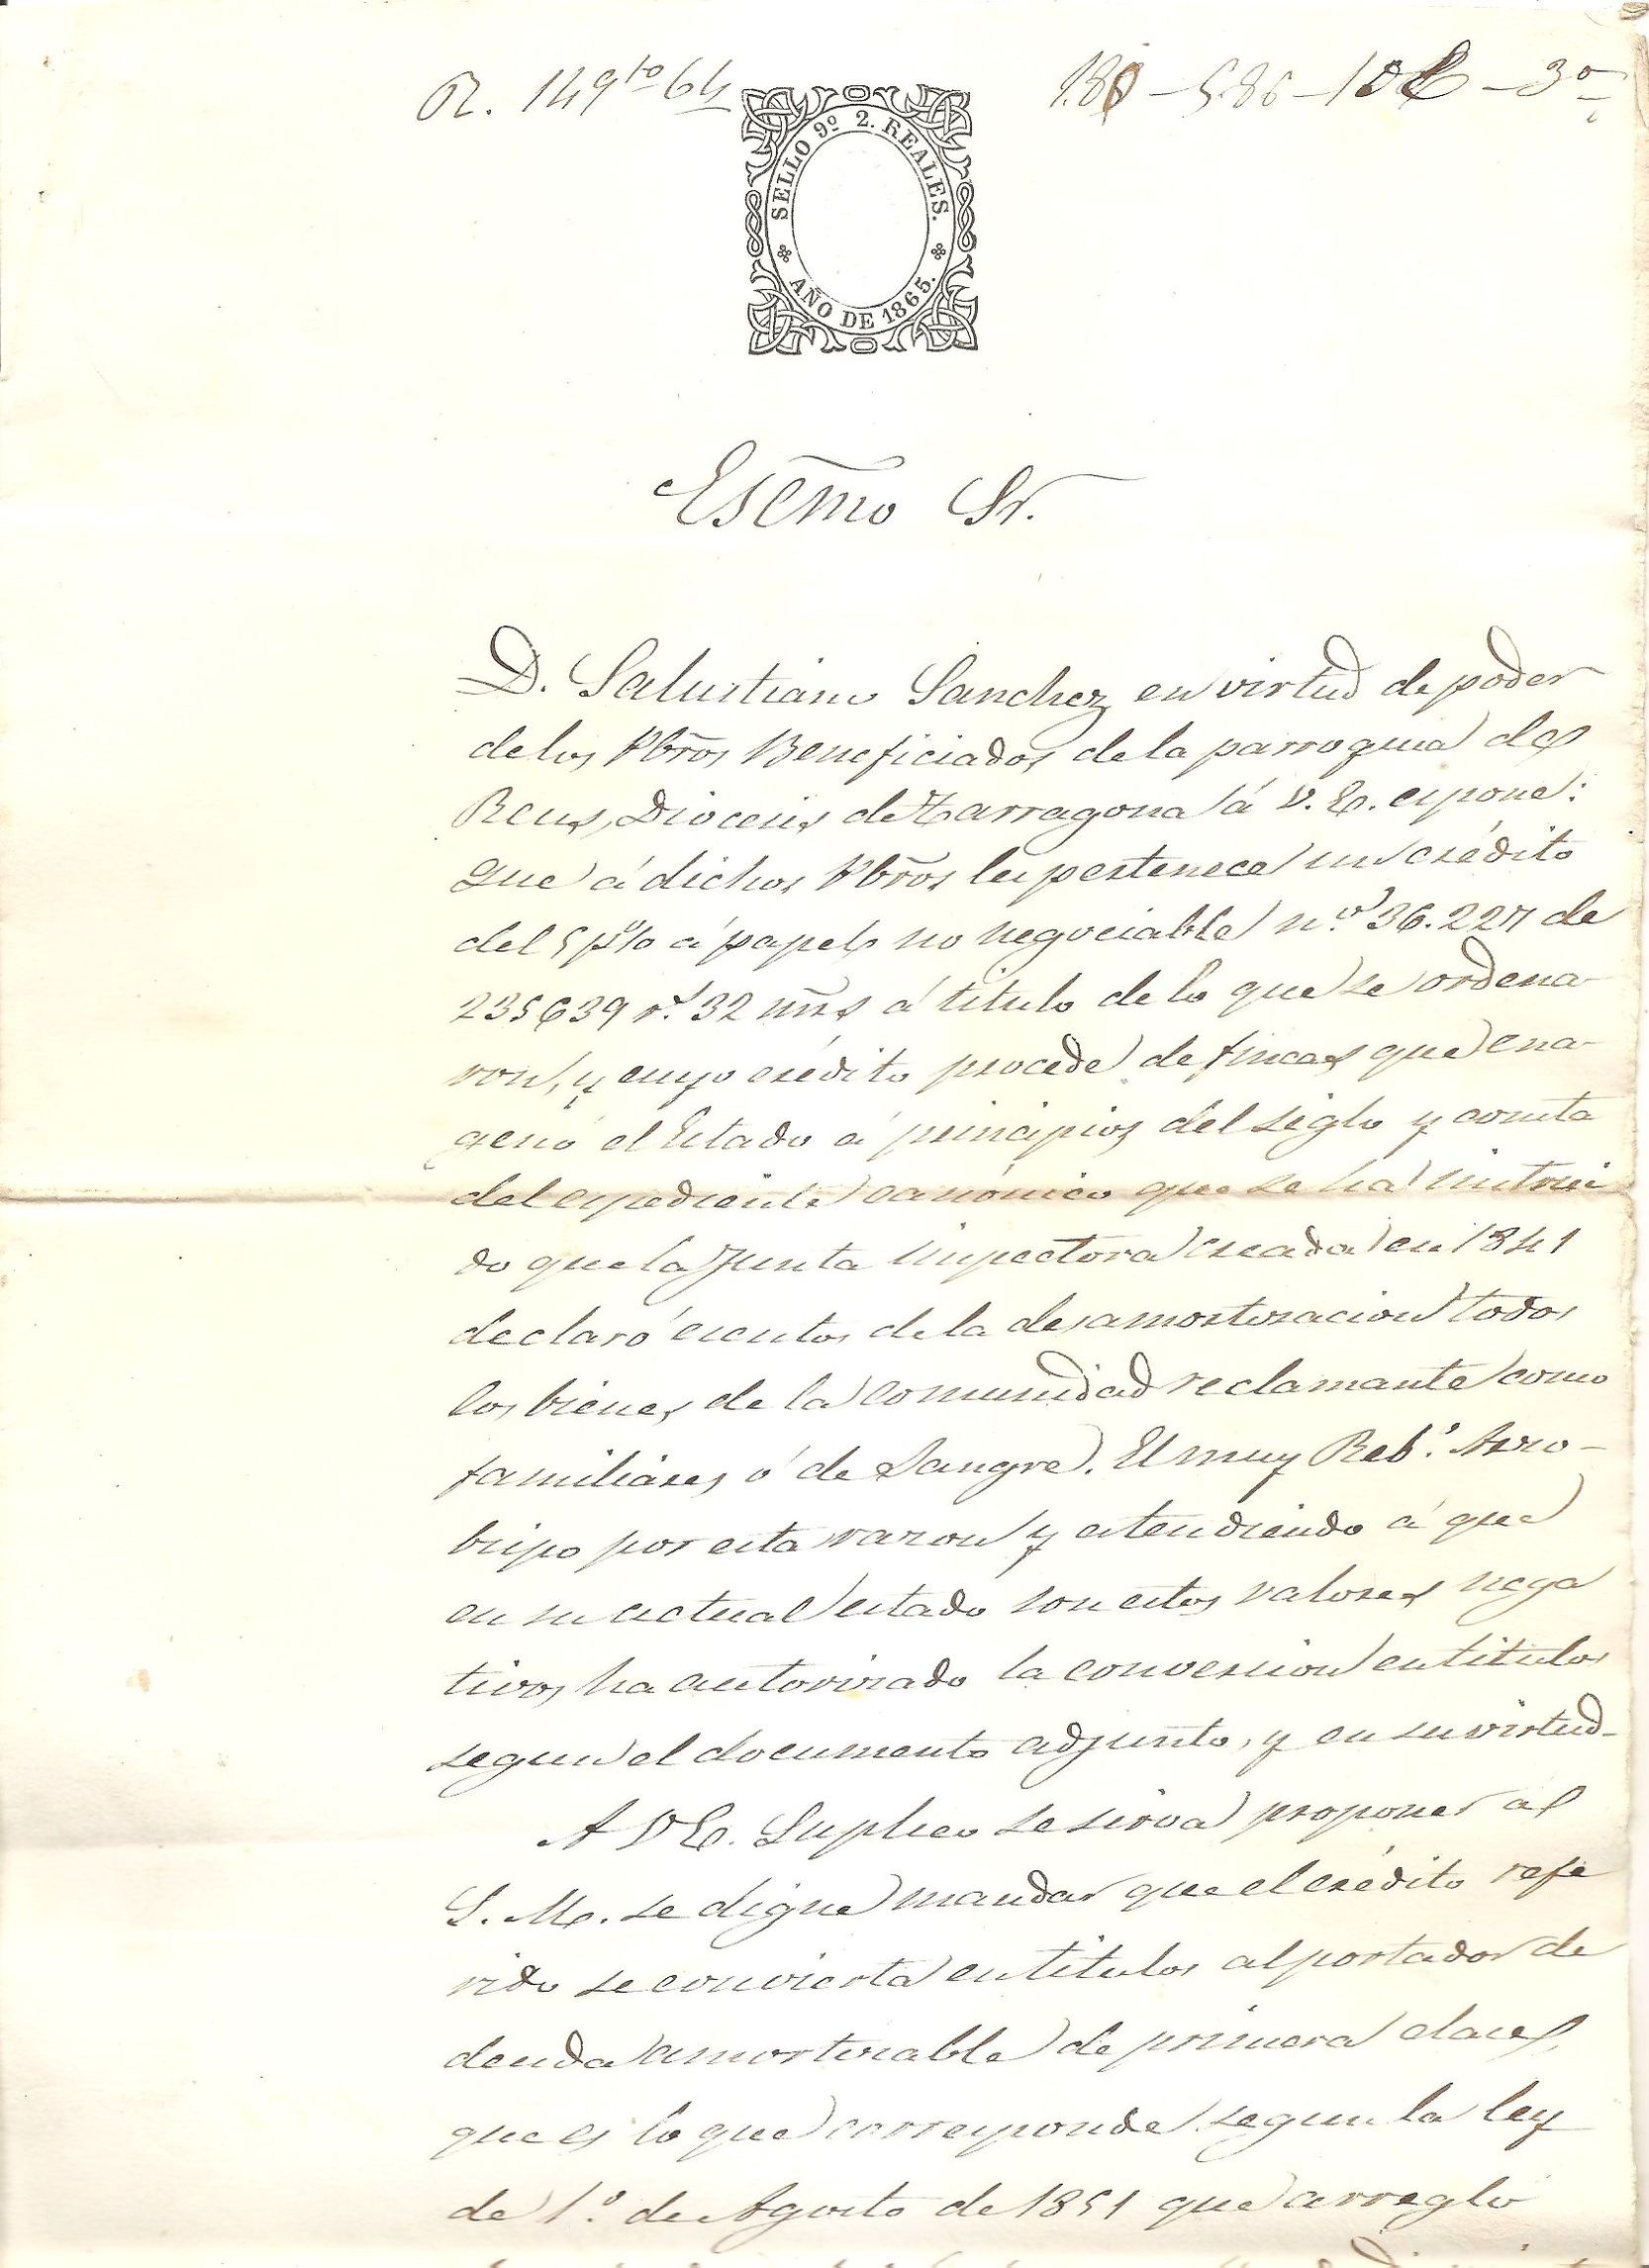 R. 149 to 64
SELLO 9º 2. REALES.
AÑO DE 1865.
Escmo Sr.
D. Salustiano Sanchez en virtud de poder
de los Pbros Beneficiados de la parroquia de
Reus, Diocesis de Tarragona á V. E. espone:
Que á dichos Pbros les pertenece un crédito
del 5 p% á papel no negociable n.º 36.227 de
235639 rs. 32 mrs á titulo de lo que se ordena-
ron, y cuyo crédito procede de fincas que ena-
genó el Estado á principios del siglo y consta
del espediente canónico que se ha instrui
do que la Junta inspectora creada en 1841
declaró esentos de la desamortisacion todos
los bienes de la comunidad reclamante como
familiares ó de Sangre. El muy Rebº. Arzo-
bispo por esta razon y atendiendo á que
en su actual estado son estos valores nega
tivos ha autorizado la conversion en titulos
segun el documento adjunto, y en su virtud-
A V E. Suplico se sirva proponer a
S. M. se digne mandar que el crédito refe
rido se convierta en titulos al portador de
deuda amortizable de primera clase,
que es lo que corresponde segun la ley
de 1.º de Agosto de 1851 que arregló